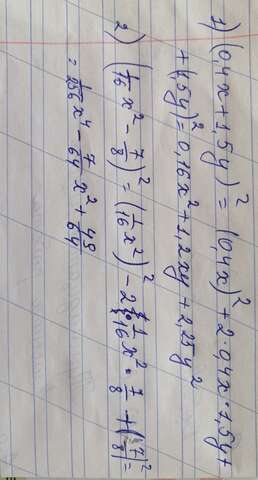 1) (0,4x + 1,5y)² = (0,4x)² + 2 · 0,4x · 1,5y +
+ (1,5y)² = 0,16x² + 1,2xy + 2,25y²
2) (1/16 x² - 7/8)² = (1/16 x²)² - 2 · 1/16 x² · 7/8 + (7/8)² =
= 1/256 x⁴ - 7/64 x² + 49/64